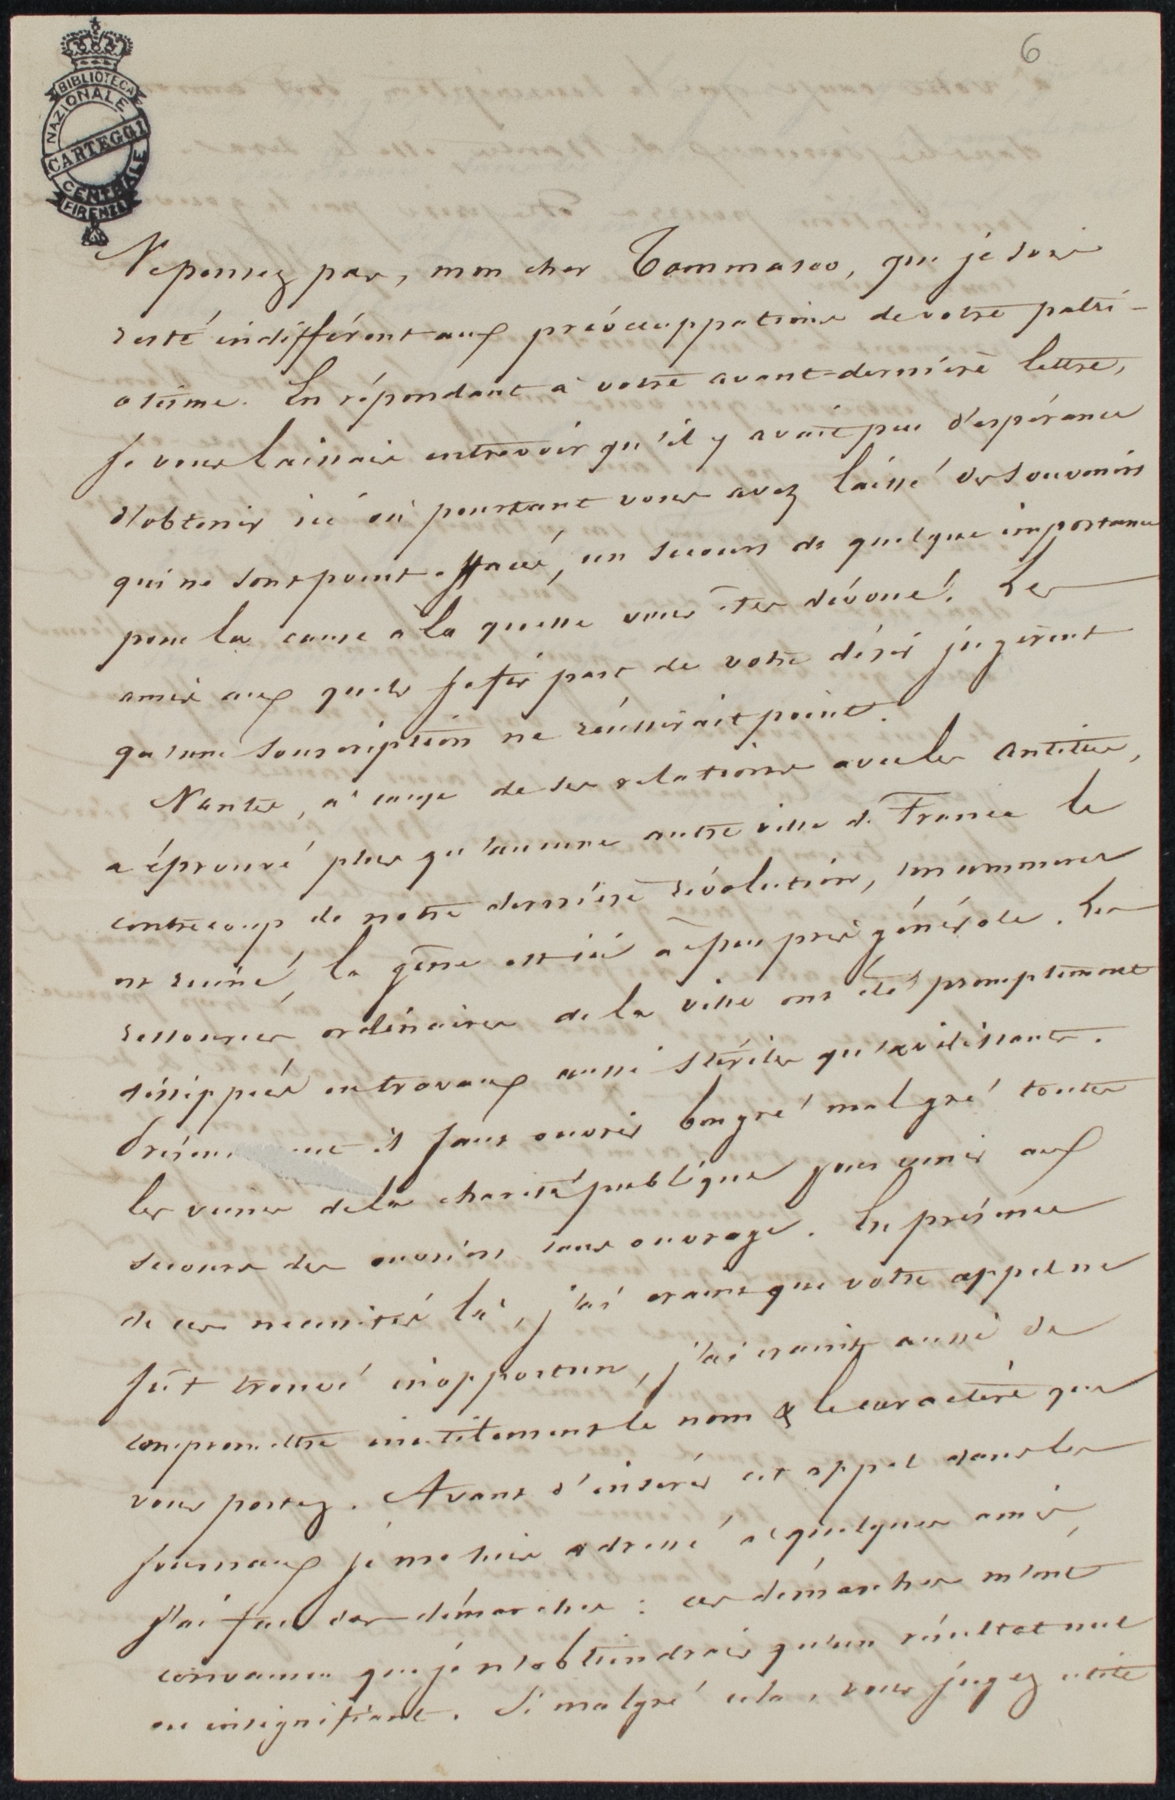 6
BIBLIOTECA
NAZIONALE
CARTEGGI
CENTRALE
FIRENZE
Ne pensez pas, mon cher Tommaseo, que je sois
resté indifférent aux préoccuppations de votre patri-
otisme. En répondant à votre avant-dernière lettre,
je vous laissais entrevoir qu'il y avait peu d'espérance
d'obtenir ici où pourtant vous avez laissé des souvenirs
qui ne sont point effacés, un secours de quelque importance
pour la cause à la quelle vous êtes dévoué. Les
amis aux quels je fis part de votre désir jugèrent
qu'une souscription ne réussirait point.
Nantes, à cause de ses relations avec les Antilles,
a éprouvé plus qu'aucune autre ville de France le
contrecoup de notre dernière révolution, son commerce
est ruiné, la gêne est ici à peu près générale. Les
ressources ordinaires de la ville ont été promptement
dissippées en travaux aussi stériles qu'avilissants.
il faut ouvrir bongré malgré toutes
les veines de la charité publique pour venir aux
secours des ouvriers sans ouvrage. En présence
de ces necessités là, j'ai craint que votre appel ne
fût trouvé inopportun, j'ai craint aussi de
compromettre inutilement le nom & le caractère que
vous portez. Avant d'insérer cet appel dans les
journaux je me suis adressé à quelques amis,
j'ai fait des démarches : ces démarches m'ont
convaincu que je n'obtiendrais qu'un résultat nul
ou insignifiant. Si malgré cela, vous jugez utile